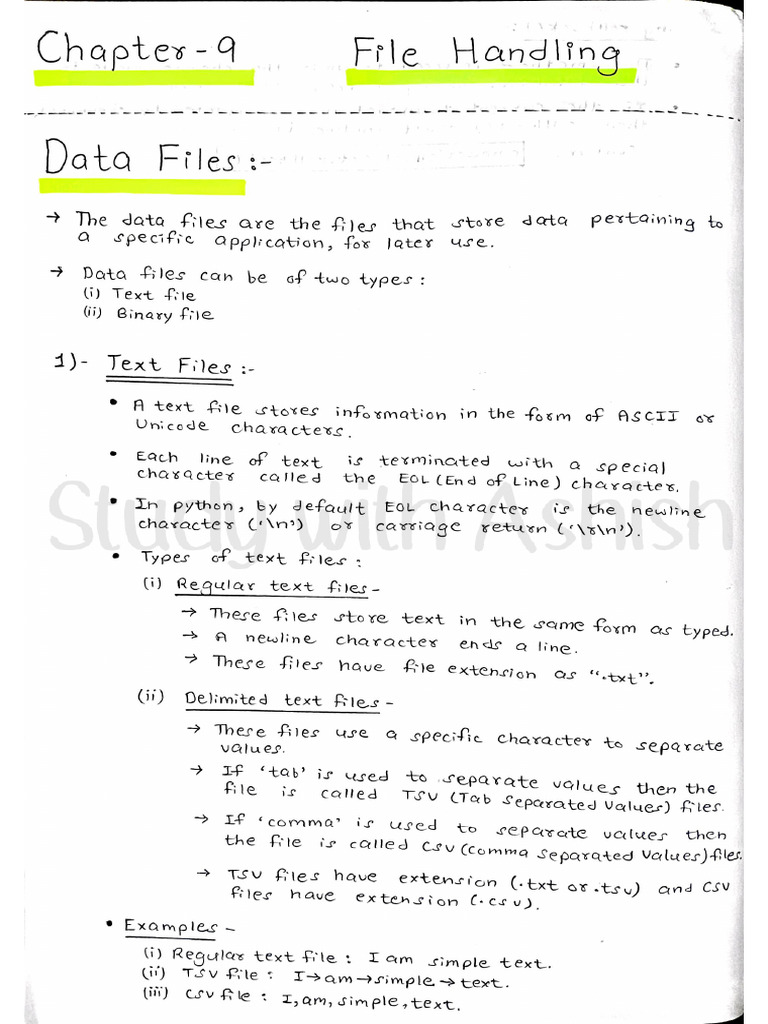 Chapter-9 File Handling
Data Files:-
→ The data files are the files that store data pertaining to
a specific application, for later use.
→ Data files can be of two types:
(i) Text file
(ii) Binary file
1)- Text Files:-
• A text file stores information in the form of ASCII or
Unicode characters.
• Each line of text is terminated with a special
character called the EOL (End of Line) character.
• In python, by default EOL character is the newline
character ('\n') or carriage return ('\r\n').
Study with Ashish
• Types of text files:
(i) Regular text files-
→ These files store text in the same form as typed.
→ A newline character ends a line.
→ These files have file extension as ".txt".
(ii) Delimited text files-
→ These files use a specific character to separate
values.
→ If 'tab' is used to separate values then the
file is called TSV (Tab Separated Values) files.
→ If 'comma' is used to separate values then
the file is called CSV (Comma Separated Values) files.
→ TSV files have extension (.txt or .tsv) and CSV
files have extension (.csv).
• Examples-
(i) Regular text file: I am simple text.
(ii) TSV file: I→am→simple→text.
(iii) CSV file: I,am,simple,text.